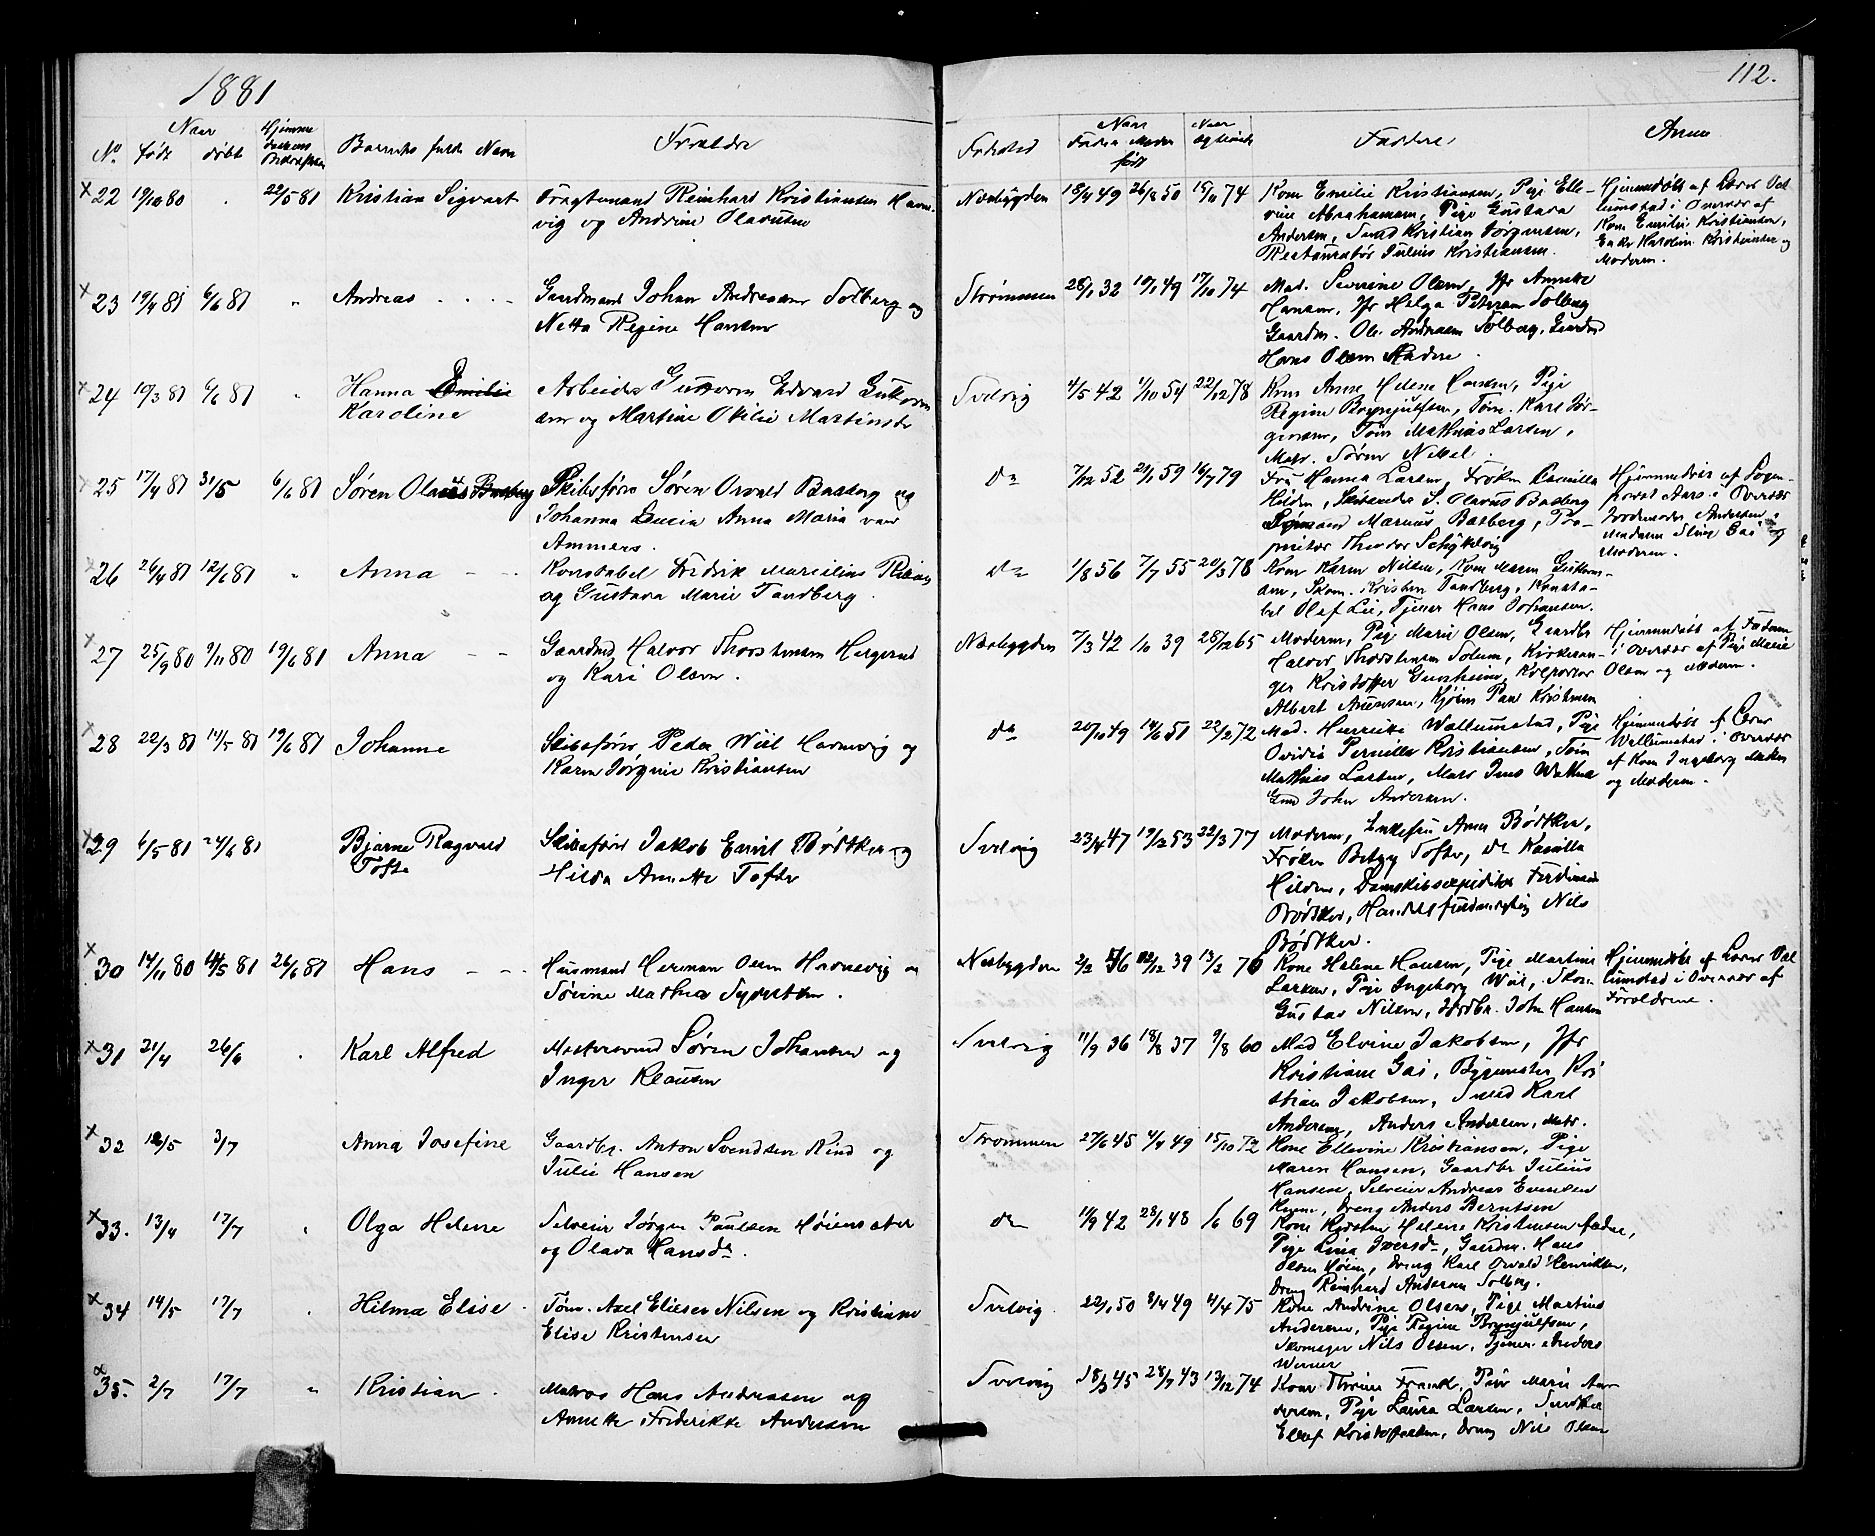 1881
112.
No
Naar
født
døbt
Barnets fulde Navn
Forældre
Fødested
Naar
Fader Moder
født
Naar
Faddere
Anm
22 19/10 80 22/5 81 Kristian Sigvart Fragtemand Reinhard Kristiansen Havn-
vig og Andrine Olavesen
Næsbygden 18/4 49 26/8 50 15/11 74 Kone Emilie Kristiansen, Pige Elle-
vine Abrahamsen, Pige Gustava
Andersen, Smed Kristian Jørgensen,
Restauratør Julius Kristiansen.
Hjemmedøbt af Lærer Val-
lumstad i Overvær af
Kone Emilie Kristiansen,
Enke Karoline Kristiansen og
Moderen.
23 19/4 81 6/6 81 " Andreas Gaardmand Johan Andreasen Solberg og
Netta Regine Hansen
Strømmen 28/1 32 19/1 49 17/10 74 Mad. Severine Olsen, Jfr Annette
Hansen, Jfr Helga Petersen Solberg
Gaardm. Ole Andreasen Solberg, Gaardmd
Hans Olsen
24 19/3 81 6/6 81 " Hanna Emilie
Karoline
Arbeider Guttorm Edvard Guttorm-
sen og Martine Otilie Martinsdr
Svelvig 4/5 42 1/10 54 22/12 78 Kone Anne Helene Larsen, Pige
Regine Brynjulfsen, Tøm. Karl Jør-
gensen, Tøm Mathias Larsen,
Matr. Søren
25 17/4 81 31/5 6/6 81 Søren Olaus Basberg Skibsfører Søren Osvald Basberg og
Johanna Lucia Anna Maria van
Ammers.
do 7/12 52 21/1 59 16/7 79 Fru Hanna Larsen, Frøken Kamilla
Hilden, Skibsreder S. Olavus Basberg
Marius Basberg, Pro-
prietær Theodor
Hjemmedøbt af Sogne-
prest Aars i Overvær
Jordemoder Andersen,
Madam Stine Gai og
Moderen.
26 26/4 81 12/6 81 " Anna Konstabel Fredrik Marcelius
og Gustava Marie Tandberg.
do 1/8 56 7/7 55 20/3 78 Kone Karen Nilsen, Kone Maren Guttorm-
sen, Skom. Kristen Tandberg, Konsta-
bel Olaf Lie, Tjener Hans Johansen.
27 25/9 80 9/11 80 19/6 81 Anna Gaardmd Halvor Thorstensen
og Kari Olsen.
Næsbygden 7/3 42 1/10 39 28/12 65 Moderen, Pige Marie Olsen, Gaardbr
Halvor Thorstensen Solum, Kirkesan-
ger Kristoffer Gunheim, Kolportør
Albert
Hjemmedøbt af Faderen
i Overvær af Pige Marie
Olsen og Moderen.
28 22/3 81 14/5 81 19/6 81 Johanne Skibsfører Peder Wiil Havnevig og
Karen Jørgine Kristiansen
do 20/10 49 14/6 51 22/2 72 Mad. Henrikke Wallumstad, Pige
Ovidia Pernille Kristiansen, Tøm
Mathias Larsen, Matr Jens
Gmd John Andersen.
Hjemmedøbt af Lærer
Wallumstad i Overvær
af Kone Ingeborg
og Moderen.
29 6/5 81 24/6 81 Bjarne Ragvald
Tofte
Skibsfører Jakob Emil Bødtker og
Hilda Anette Tofte
Svelvig 23/4 47 19/2 53 22/3 77 Moderen, Enkefru Anne Bødtker,
Frøken Betzy Tofte, do Kamilla
Hilden, Dampskibsexpeditør Ferdinand
Bødtker, Handelsfuldmægtig Nils
Bødtker.
30 14/11 80 14/5 81 26/6 81 Hans Husmand Herman Olsen Havnevig og
Sørine Mathea Syvertsen.
Næsbygden 2/2 46 12/12 39 13/2 76 Kone Helene Hansen, Pige Martine
Larsen, Pige Ingeborg Wiil, Skom
Gustav Nilsen, Gaardbr. John Hansen
Hjemmedøbt af Lærer Val-
lumstad i Overvær af
Forældrene.
31 21/4 26/6 Karl Alfred Søren Johansen og
Inger Klausen
Svelvig 11/9 36 18/8 37 9/8 60 Mad Elvine Jakobsen, Jfr
Kristiane Gai, Bygmester Kri
stian Jakobsen, Smed Karl
Andersen, Anders Andersen, Matr.
32 12/5 3/7 Anna Josefine Gaardbr. Anton Svendsen Rind og
Julie Hansen
Strømmen 27/6 45 4/4 49 15/10 72 Kone Ellevine Kristiansen, Pige
Maren Hansen, Gaardbr Julius
Hansen, Selveier Andreas Evensen
Dreng Anders Berntsen
33. 13/4 17/7 " Olga Helene Selveier Jørgen Paulsen Høiensæter
og Olava Hansdr.
do 11/9 42 28/1 48 1/6 69 Kone Kirsten Helene Kristiansen
Pige Lina Iversdr, Gaardm. Hans
Olsen Høien, Dreng Karl Osvald Henriksen,
Dreng Reinhard Andersen Solberg.
34 14/5 17/7 " Hilma Elise Tøm. Axel Elieser Nilsen og Kristiane
Elise Kristensen
Svelvig. 22/1 50 8/4 49 4/4 75 Kone Andrine Olsen, Pige Martine
Andersen, Pige Regine Brynjulfsen,
Skomager Nils Olsen, Tjener Anders
Werner
35. 2/7 17/7 " Kristian Matros Hans Andreasen og
Annette Frederikke Andersen
Svelvig 18/3 45 28/7 43 13/12 74 Kone Thrine Frank, Pige Marie An-
dersen, Pige Laura Larsen, Snedker
Ellef Kristoffersen, Dreng Nils Olsen